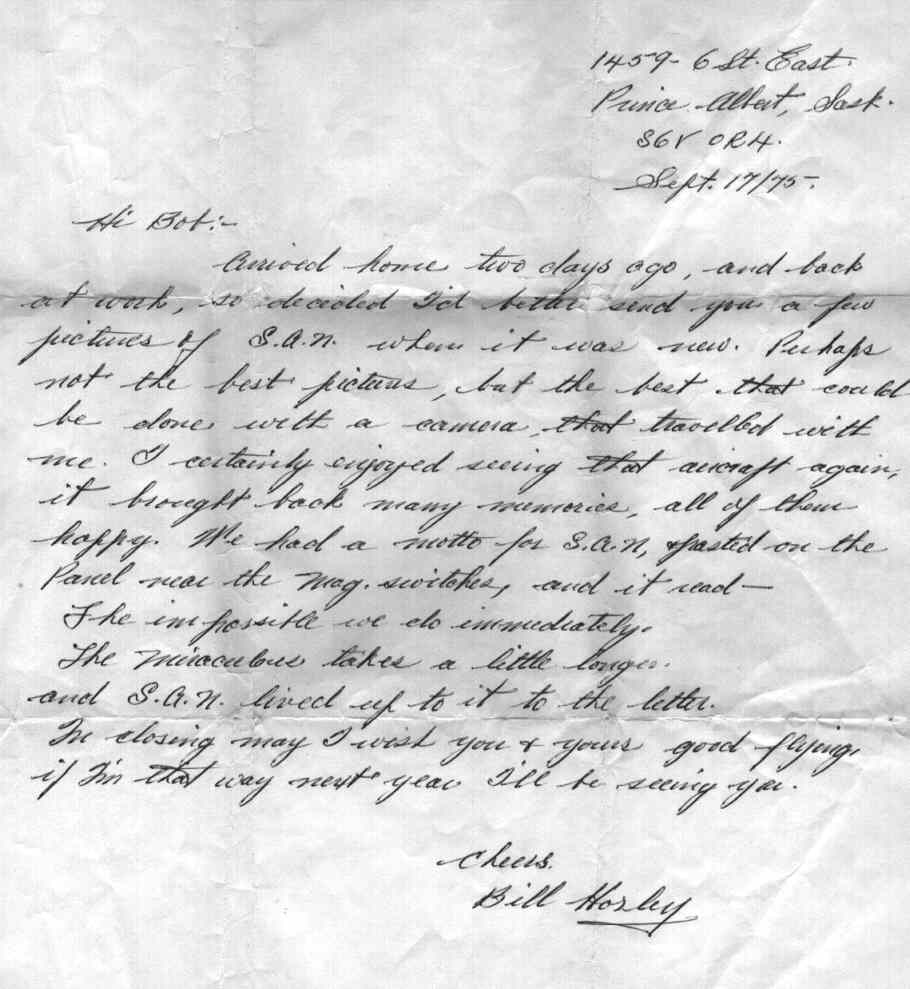 1459- 6 St. East.
Prince Albert, Sask.
S6V 0R4.
Sept. 17/75.
Hi Bob:-
Arrived home two days ago, and back
at work, so decided I'd better send you a few
pictures of S.A.N. when it was new. Perhaps
not the best pictures, but the best that could
be done with a camera, that travelled with
me. I certainly enjoyed seeing that aircraft again,
it brought back many memories, all of them
happy. We had a motto for S.A.N, pasted on the
Panel near the Mag. switches, and it read—
The impossible we do immediately.
The Miraculous takes a little longer.
and S.A.N. lived up to it to the letter.
In closing may I wish you & yours good flying,
if I'm that way next year I'll be seeing you.
Cheers.
Bill